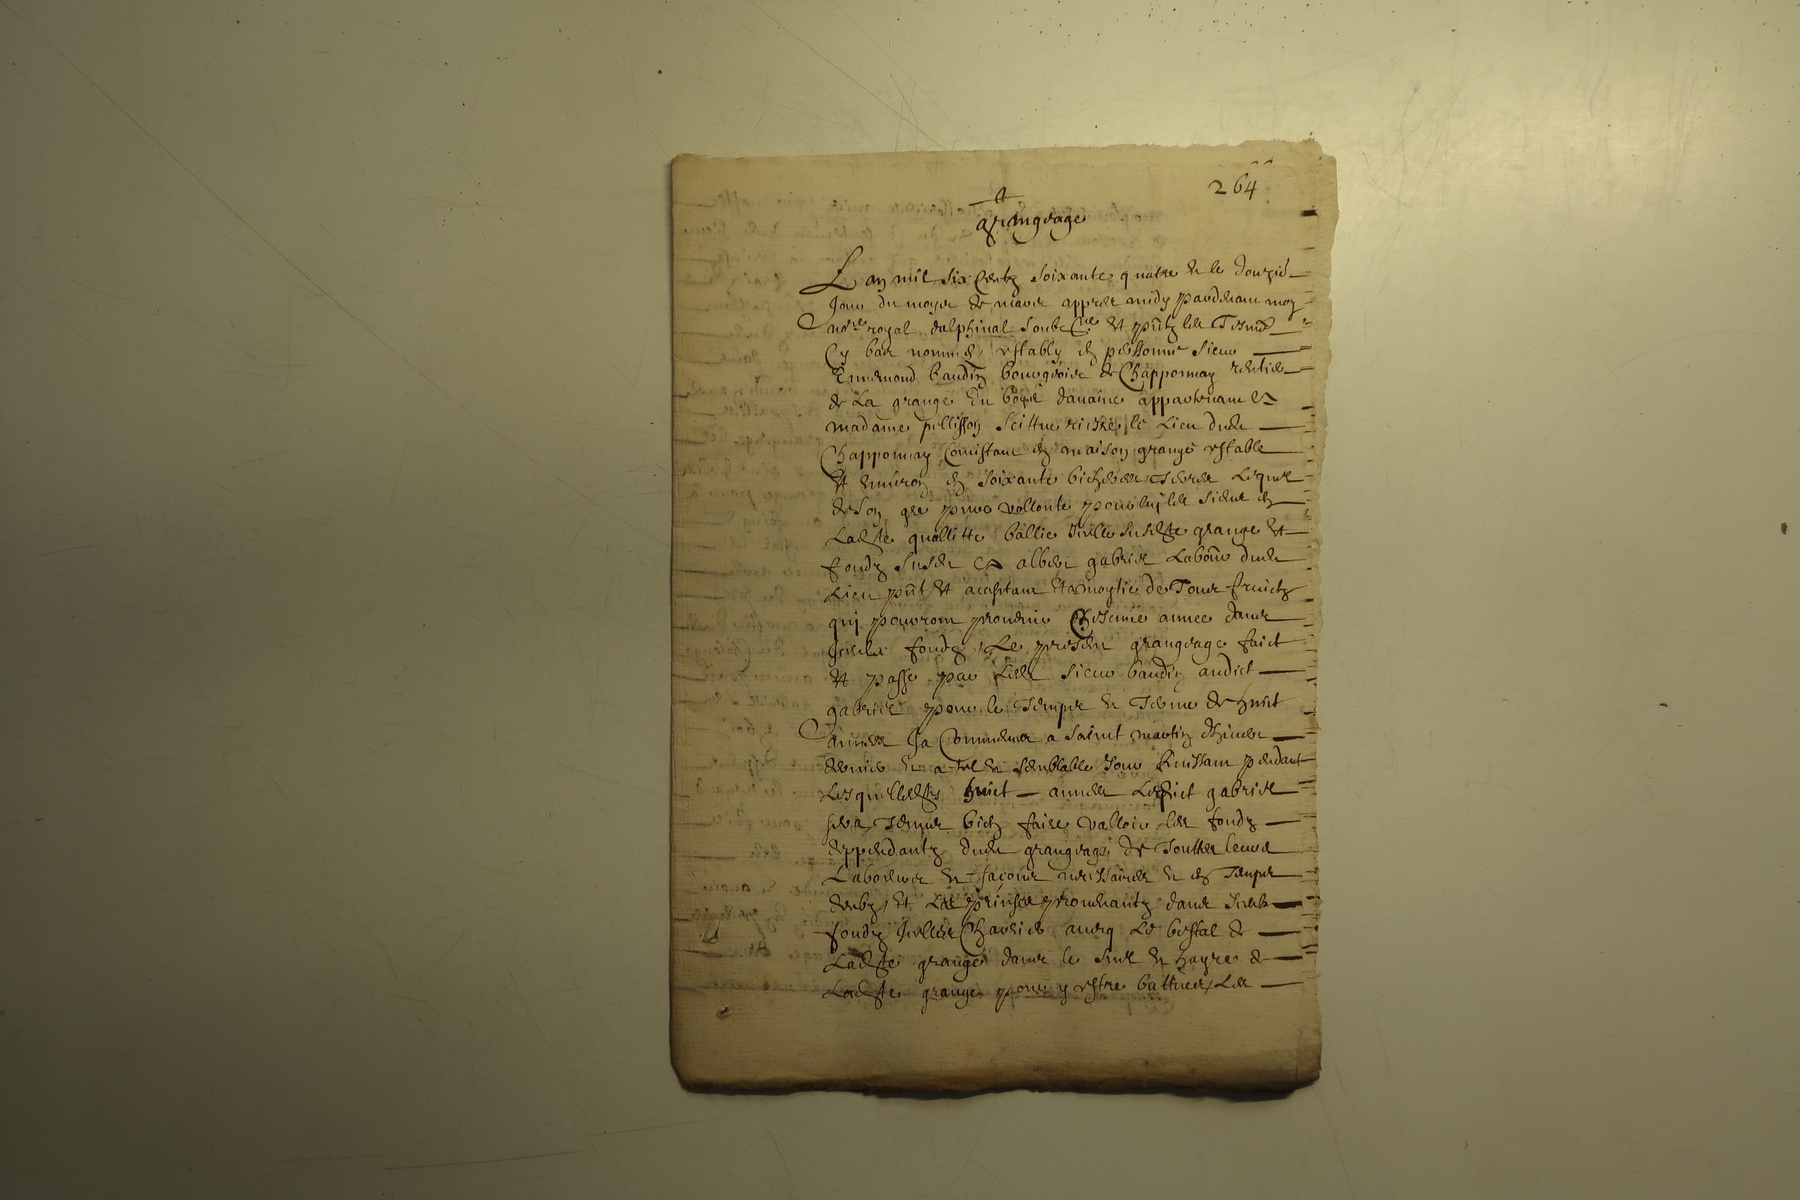 264
grangeage
L an mil six centz soixante quatre et le douzie
Jour du moys de mars appres midy pardevant moy
no.re royal dalphinal soub.ne et pñtz les tesmo.
Cy bas nommes, estably en personne sieur
Ennemond baudin bourgeois de Chapponnay rentier
de La grange du appartenant a
madame pellisson scittue riere le Lieu dudt
Chapponnay Consistant en maison grange estable
et environ en soixante bicherees terres Lequel
de son gre pure vollonte
Ladte quallitte ballie grange et
fondz susdt a albert gabriel Laboure dudt
Lieu pñt et aceptant a moytie de tous fruictz
qui pourront provenir Chescune annee dans
Iceulx fondz, Le present grangeage faict
et passe par Ledt sieur baudin audict
gabriel pour le temps et terme de huict
annees Ja Commences a sainct martin dhiver
dernier et a tel et semblable Jour finissant pendant
Lesquelles huict annees Ledict gabriel
sera tenu bien faire valloir les fondz
deppendantz dudt grangeage de touttes leurs
Laboures et façons nessaires et en temps
deubz, et Les prinses provenantz dans Iceux
fondz Icelles Charrier avecq Le bestal de
Ladte grange dans le suel et hayre de
Ladte grange pour y estre battues, Les